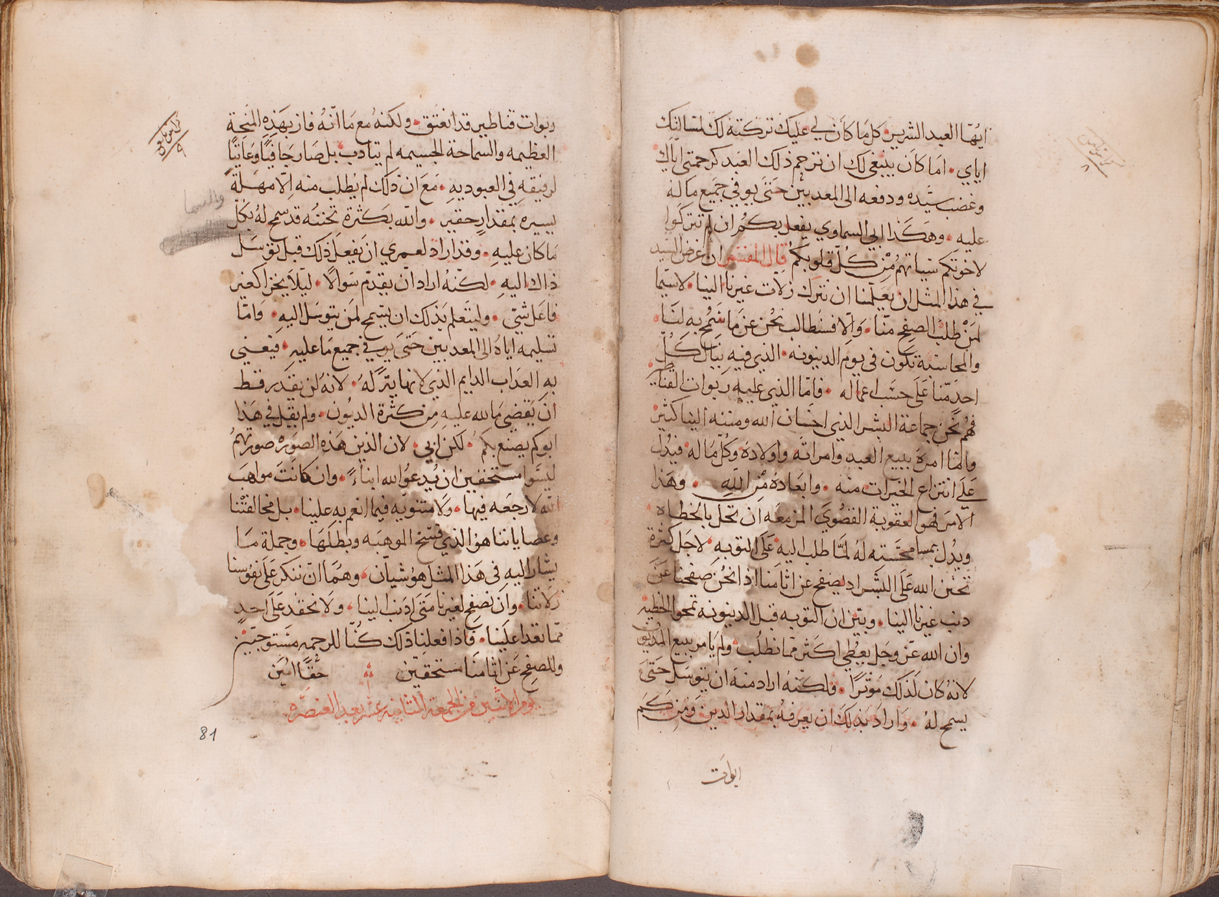 ايها العبد الشرير • كل ما كان لي عليك تركته لك لمسالتك
اياي • اما كان ينبغي لك ان ترحم ذلك العبد كرحمتي اياك •
وغضب سيده ودفعه الى المعذبين حتى يوفي جميع ماله
عليه • وهكذا ابي السماوي يفعل بكم ان لم تتركوا
لاخوتكم سياتهم من كل قلوبكم قال المفسر ان غرض السيد
في هذا المثل ان يعلمنا ان نترك زلات غيرنا الينا • لاسيما
لمن طلب الصفح منا • والا فنطالب نحن عن ما سمح به لنا •
والمحاسبة تكون في يوم الدينونه • الذي فيه يسال كل
احد منا على حسب اعماله • فاما الذي عليه ربوات القناطير
فهم نحن جماعة البشر الذي احسان الله ومننه الينا كثير
واما امره ببيع العبد وامراته واولاده وكل ماله • فيدل
على انتزاع الخيرات منه • وابعاده من الله • وهذا
الامر هو العقوبة القصوى المزمعه ان تحل بالخطاه •
ويدل بمسامحته له لما طلب اليه على التوبه • لاجل كثرة
تحنن الله على البشر اد يصفح عن اثامنا ادا نحن صفحنا عن
دنب غيرنا الينا • وبين ان التوبه قبل الدينونه تمحو الخطيه
وان الله عز وجل يعطي اكثر مما نطلب • ولم يامر ببيع المديون
لانه كان لذلك موثرا • ولكنه اراد منه ان يتوسل حتى
يسمح له • واراد بذلك ان يعرفه بمقدار الدين • ومن كم
ربوات
ربوات قناطير قد انعتق • ولكنه مع ما انه فاز بهذه المنحة
العظيمه والسماحة الجسيمه لم يتادب • بل صار جافيا وعاتيا
لرفيقه في العبوديه • مع ان ذلك لم يطلب منه الا مهلة
يسيره بمقدار حقير • والله بكثرة تحننه قد سمح له بكل
ما كان عليه • وقد اراد لعمري ان يفعل ذلك قبل توسل
ذاك اليه • لكنه اراد ان يقدم سوالا • ليلا يخزا كغير
فاعل شي • وليتعلم بذلك ان يسمح لمن يتوسل اليه • واما
تسليمه اياه الى المعذبين حتى يوفي جميع ما عليه • فيعني
به العذاب الدايم الذي لا نهاية له • لانه لن يقدر قط
ان يقضي ما لله عليه من كثرة الديون • ولم يقل في هذا
ابوكم يصنع بكم • لكن ابي • لان الذين هذه الصوره صورتهم
ليسوا مستحقين ان يدعوا لله ابناء • وان كانت مواهب
الله لا رجعه فيها • ولا مثنويه فيما انعم به علينا • بل مخالفتنا
وعصياننا هو الذي فسخ الموهبه وبطلها • وجملة ما
يشار اليه في هذا المثل هو شيان • وهما ان ننكر على نفوسنا
زلاتنا • وان نصفح لغيرنا متى اذنب الينا • ولا نحقد على احد
مما تعدا علينا • فاذا فعلنا ذلك كنا للرحمه مستوجبين
وللصفح عن اثامنا مستحقين حقا امين
يوم الاثنين من الجمعه الثامنه عشر بعد العنصره
81